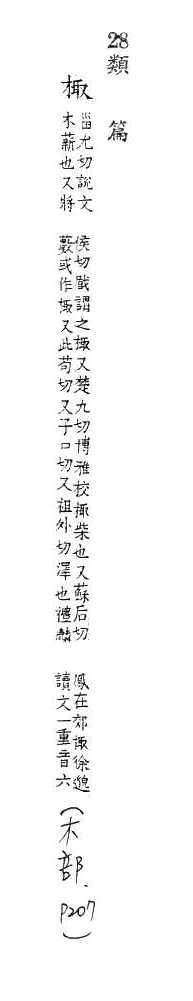 28類篇
棷
甾尤切說文
木薪也又將
侯切戢謂之棷又楚九切博雅校棷柴也又蘇后切
藪或作棷又此苟切又子口切又祖外切澤也禮麟
鳳在郊棷徐邈
讀文一重音六
(木部、P207)